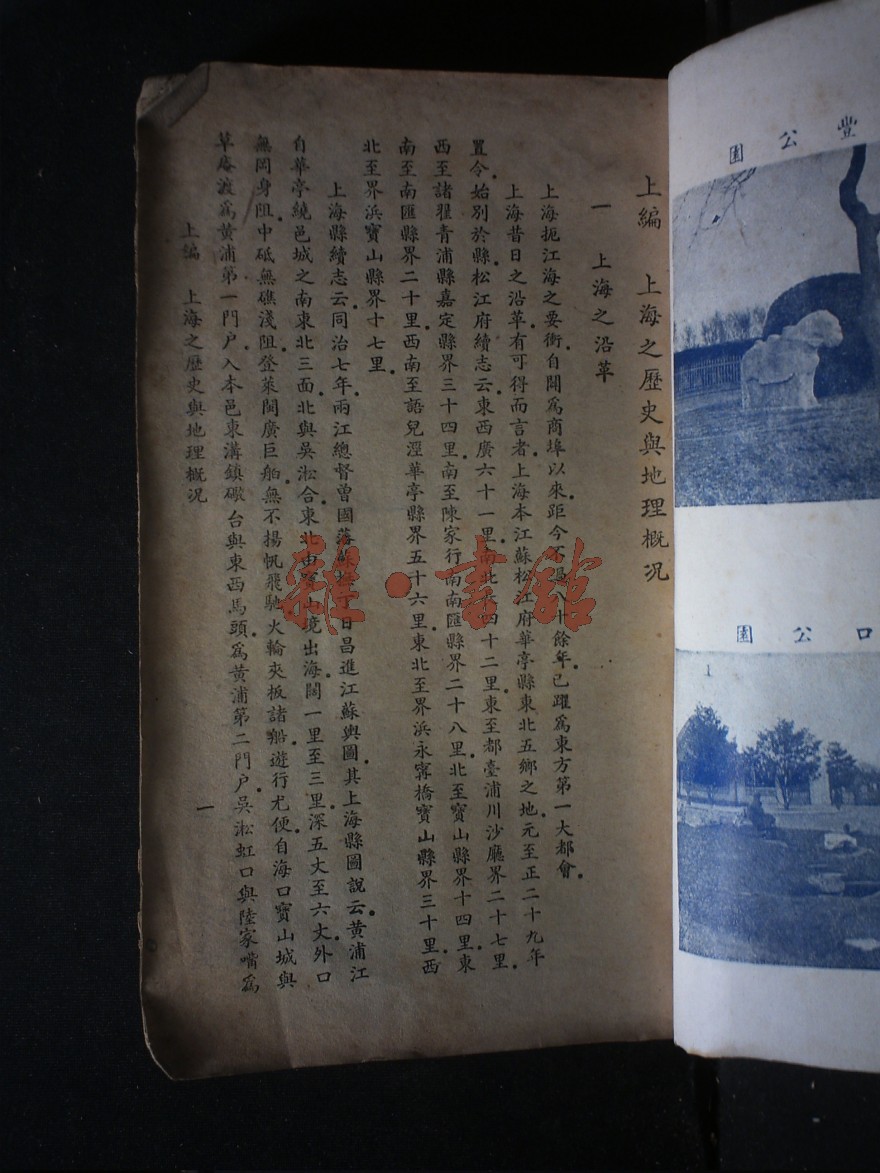 上編　上海之歷史與地理概況
一　上海之沿革
上海扼江海之要衝．自闢為商埠以來．距今不過八十餘年．已躍為東方第一大都會．
上海昔日之沿革．有可得而言者．上海本江蘇松江府華亭縣東北五鄉之地．元至正二十九年
置．今始別於縣．松江府續志云．東西廣六十一里．南北 四十二里．東至都臺浦川沙廳界二十七里．
西至諸翟青浦縣嘉定縣界三十四里．南至陳家行南南匯縣界二十八里．北至寶山縣界十四里．東
南至南匯縣界二十里．西南至語兒涇華亭縣界五十六里．東北至界浜永寧橋寶山縣界三十里．西
北至界浜寶山縣界十七里．
上海縣續志云．同治七年．兩江總督曾國藩 丁日昌進江蘇輿圖．其上海縣圖說云．黃浦江
自華亭繞邑城之南東北三面．北與吳淞合．東北由寶山境出海．闊一里至三里．深五丈至六丈．外口
無岡身阻．中砥無礁淺阻．登萊閩廣巨舶．無不揚帆飛馳．火輪夾板諸船．遊行尤便．自海口寶山城與
草庵渡為黃浦第一門戶．入本邑東溝鎮礮台與東西馬頭．為黃浦第二門戶．吳淞虹口與陸家嘴為
上編　上海之歷史與地理概況
一
豐公園
口公園
雜·書館